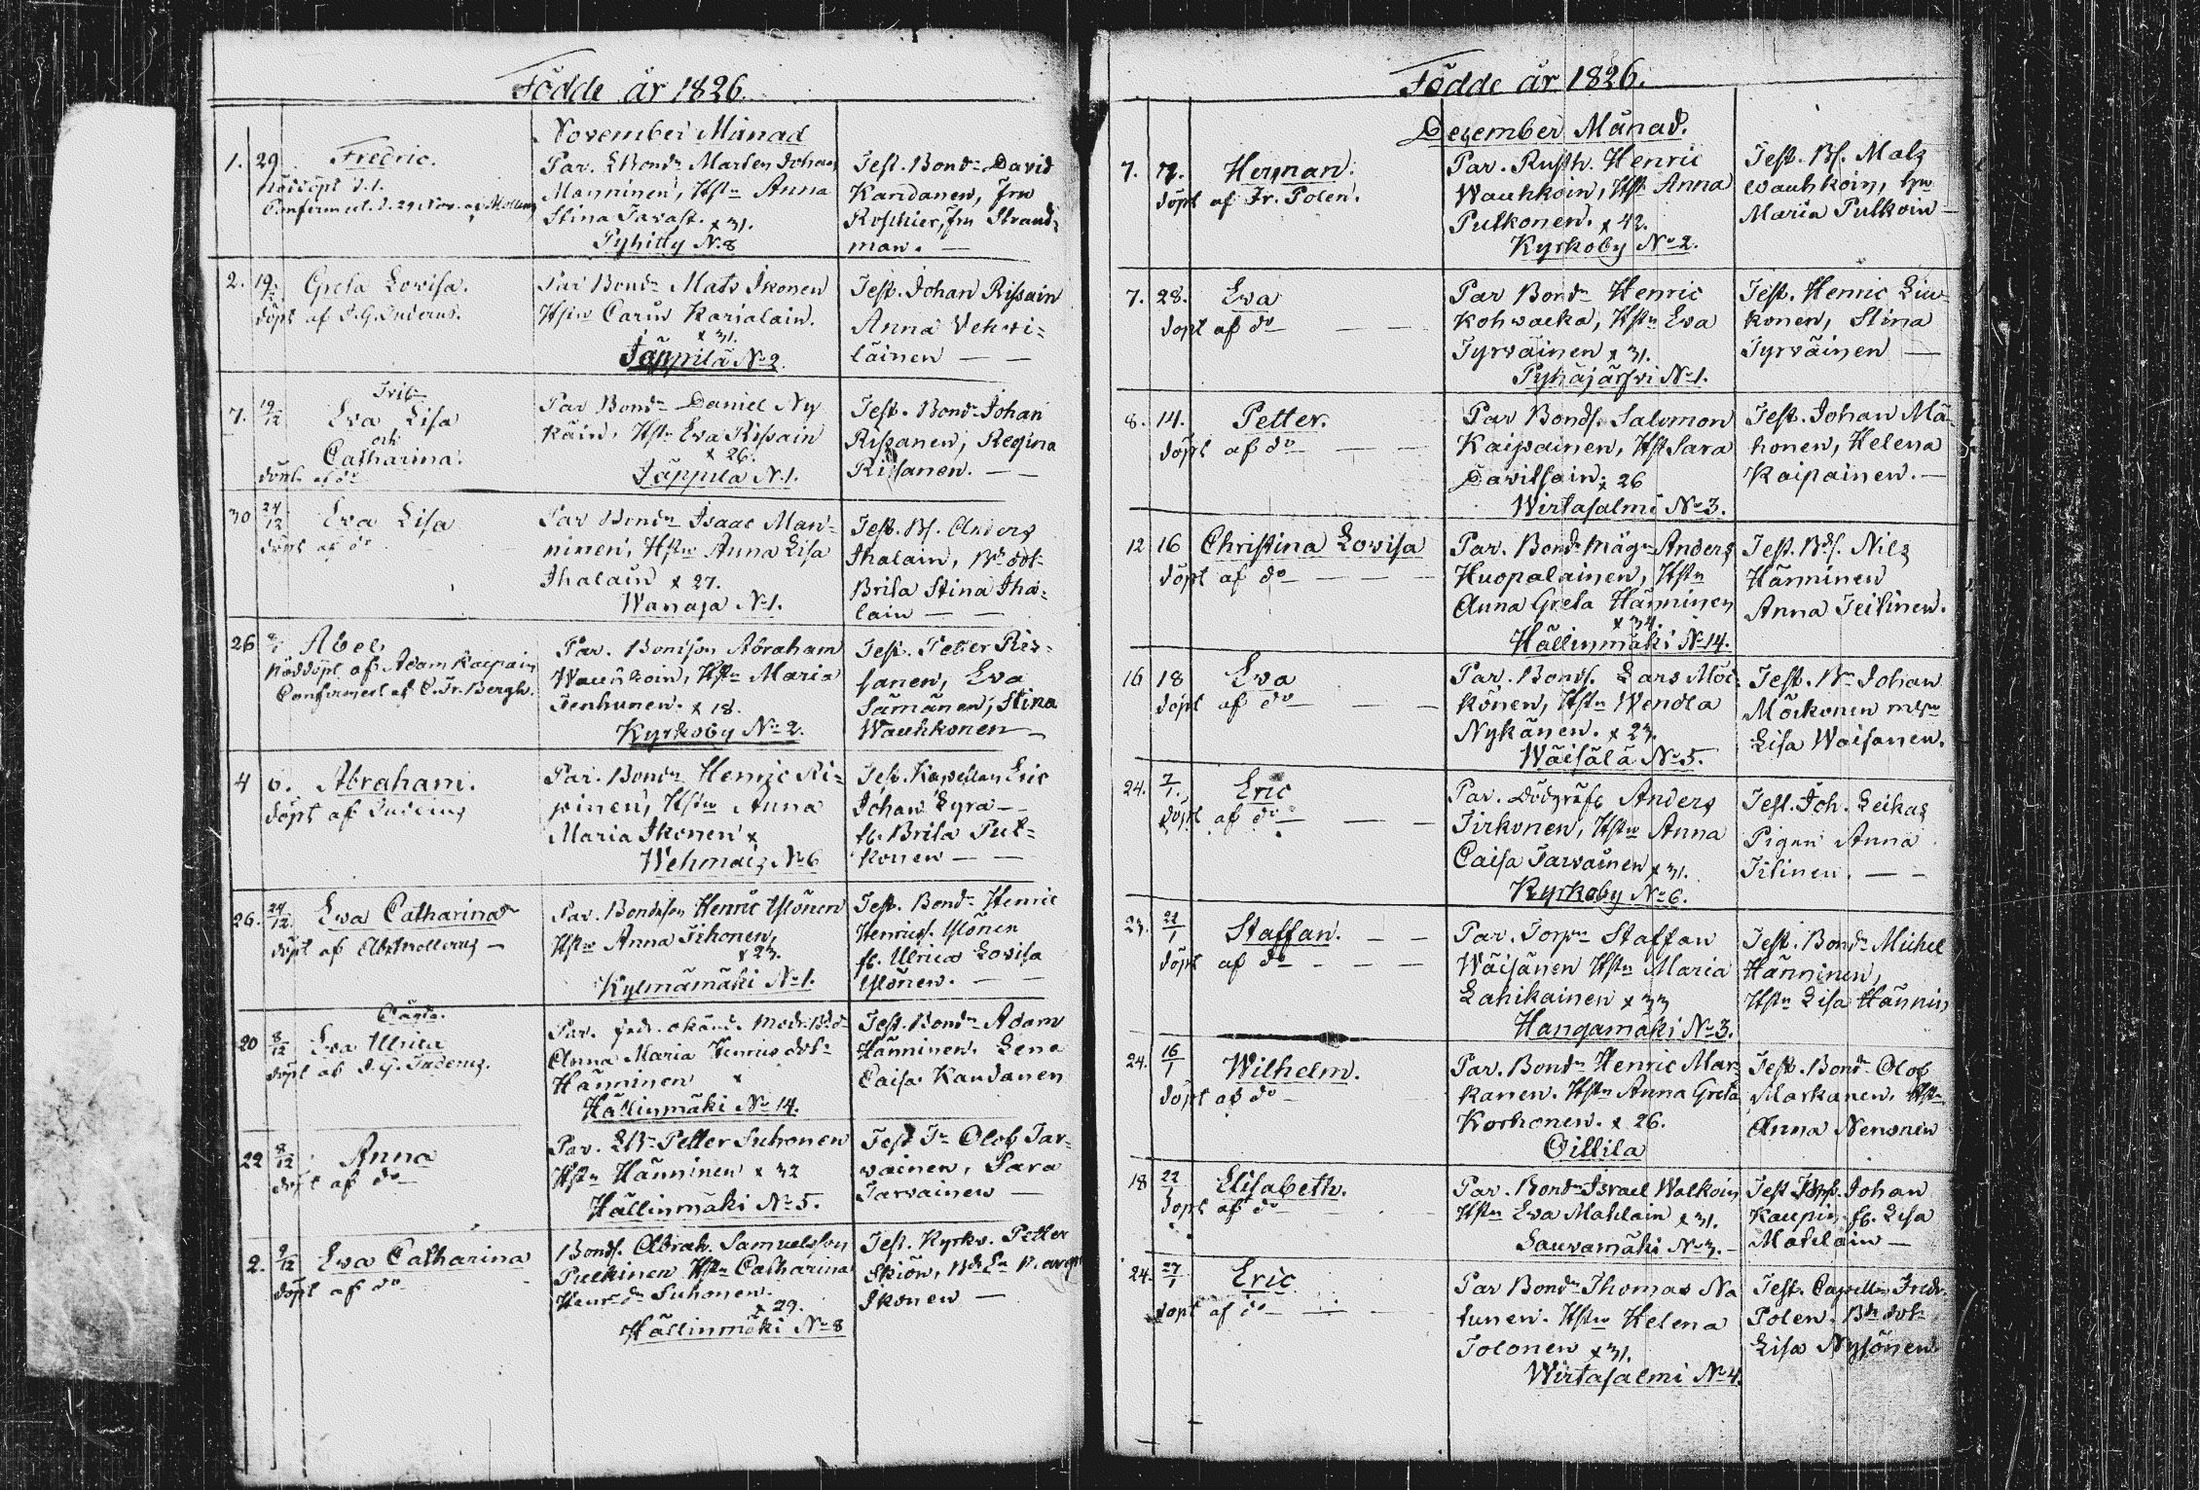 Födde år 1826.
November Månad
1. 29 Fredric.
nöddöpt d. 1.
Confirmerad d. 29 Nov. af
Par. Bond: Marten Johan
Manninen, Hstr Anna
Stina Tavast. x 31.
Pyhitty No 8
Test. Bond: David
Kandanen, fru
Roschier, fru Strand-
man. —
2. 19. Greta Lovisa.
döpt af I. G. Indenius.
Par Bond: Mats Ikonen
Hstr Carin Karjalain.
x 31.
Jäppilä No 2.
Test. Johan Rissain
Anna Vehvi=
läinen — —
7. 19/12 Tvil:
Eva Lisa
och
Catharina.
döpt af do
Par Bond: Daniel Ny
käin, Hstr Eva Rissain
x 26.
Jäppilä No 1.
Test. Bond: Johan
Rissanen, Regina
Rissanen. — —
30 24/12 Eva Lisa
döpt af do
Par Bond: Isaac Man-
ninen, Hstr Anna Lisa
Ihalain x 27.
Wanaja No 1.
Test. Bs. Anders
Ihalain, Bd. dot-
Brita Stina Iha-
lain — —
26 Abel
Nöddöpt af Adam Kaipain
Confirmerad af C. Fr. Bergh.
Par. Bondson Abraham
Wauhkoin, Hstr Maria
Tenhunen. x 18.
Kyrkoby No 2.
Test. Petter Ris-
sanen, Eva
Sämänen, Stina
Wauhkonen —
4 6. Abraham.
döpt af Indenius
Par. Bond: Henric Ri-
pinen, Hstr Anna
Maria Ikonen x
Wehmais No 6
Test. Kapellan Eric
Johan Lyra —
fl. Brita Put-
konen — —
26. 24/12 Eva Catharina
döpt af —
Par. Bondeson Henric Ylönen
Hstr Anna Tihonen,
x 23.
Kylmämäki No 1.
Test. Bond: Henric
Henricss. Ylönen
fl. Ulrica Lovisa
Ylönen. — —
20 8/12 Oägta.
Eva Ulrica
döpt af I. G. Indenius.
Par. fadr. okänd. Modr. Bd-
Anna Maria Henrics dot-
Hänninen x
Hällinmäki No 14.
Test. Bond: Adam
Hänninen. Lena
Caisa Kandanen
22 8/12 Anna
döpt af do
Par. Petter Suhonen
Hstr Hänninen x 32
Hällinmäki No 5.
Test Olof Tar-
vainen, Sara
Tarvainen —
2. 9/12 Eva Catharina
döpt af do
Bonds. Abrah. Samuelsson
Pulkinen Hstr Catharina
Henr. dr Suhonen.
x 29.
Hällinmäki No 8
Test. Kyrkv. Petter
Skiön,
Ikonen —
Födde år 1826.
Dezember Månad.
7. 17. Herman.
döpt af Fr. Polen.
Par. Rusth. Henric
Wauhkoin, Hstr Anna
Putkonen. x 42.
Kyrkoby No 2.
Test. Bs. Mats
Wauhkoin, hstr
Maria Putkoin —
7. 28. Eva
döpt af do — — —
Par Bond: Henric
Kohwacka, Hstr Eva
Tyrväinen x 31.
Pyhäjärwi No 1.
Test. Henric Liu-
konen, Stina
Tyrväinen —
8. 14. Petter.
döpt af do — — —
Par Bonds. Salomon
Kaipainen, Hstr Sara
Davitsain. x 26
Wirtasalmi No 3.
Test. Johan Mä-
honen, Helena
Kaipainen. —
12 16 Christina Lovisa
döpt af do — — — —
Par. Bond: Måg: Anders
Huopalainen, Hstr
Anna Greta Hänninen
x 34.
Hällinmäki No 14.
Test. Bds. Nils
Hänninen
Anna Teitinen.
16 18 Eva
döpt af do — — —
Par. Bonds. Lars Möi-
könen, Hstr Wendla
Nykänen. x 23.
Wäisälä No 5.
Test. Bn Johan
Möikonen
Lisa Waisanen.
24. 7/1. Eric
döpt af do — — —
Par. Dödgräf: Anders
Tirkonen, Hstr Anna
Caisa Tarvainen x 31.
Kyrkoby No 6.
Test. Joh. Leikas
Pigan Anna
Titinen. — —
23. 21/1 Staffan. — —
döpt af do — — —
Par. Torp: Staffan
Wäisänen Hstr Maria
Lahikainen x 33
Hangamäki No 3.
Test. Bond: Michel
Hänninen,
Hstr Lisa Hännin
24. 16/1 Wilhelm.
döpt af do —
Par. Bond: Henric Mar-
kanen. Hstr Anna Greta
Korhonen. x 26.
Oittila
Test. Bond: Olof
Markanen. Hstr
Anna Nenonen
18 22/1 Elisabeth.
döpt af do
Par. Bond: Israel Walkoin
Hstr Eva Matilain x 31.
Sauvamäki No 3. —
Test. Johan
Kaupin, fl. Lisa
Matilain —
24. 27/1 Eric.
döpt af do — — —
Par Bond: Thomas Na
tunen. Hstr Helena
Tolonen x 31.
Wirtasalmi No 4.
Test. Capellan Fredr.
Polen. Bd. dot-
Lisa Nylönen